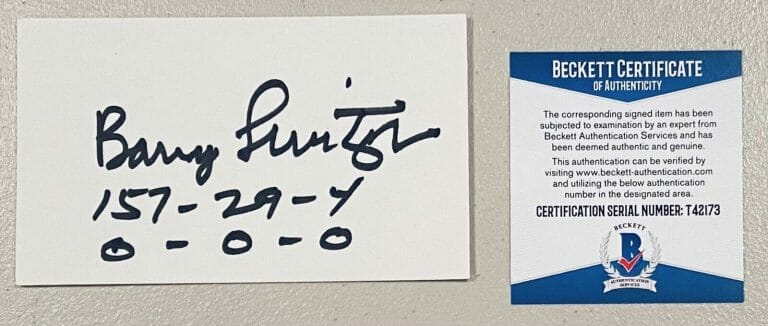 Barry Switzer
157-29-4
0-0-0
BECKETT CERTIFICATE
OF AUTHENTICITY
The corresponding signed item has been
subjected to examination by an expert from
Beckett Authentication Services and has
been deemed authentic and genuine.
This authentication can be verified by
visiting www.beckett-authentication.com
and utilizing the below authentication
number in the designated area.
CERTIFICATION SERIAL NUMBER: T42173
BECKETT
B
AUTHENTICATION
SERVICES